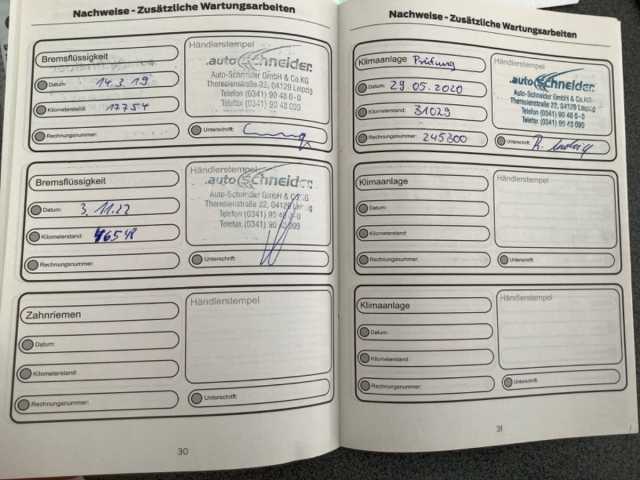 Nachweise - Zusätzliche Wartungsarbeiten
Bremsflüssigkeit
Datum: 14.3.19
Kilometerstand: 17754
Rechnungsnummer:
Händlerstempel
auto Schneider
Auto-Schneider GmbH & Co.KG
Theresienstraße 22, 04129 Leipzig
Telefon (0341) 90 48 6-0
Telefax (0341) 90 48 099
Unterschrift:
Bremsflüssigkeit
Datum: 3.11.22
Kilometerstand: 46548
Rechnungsnummer:
Händlerstempel
auto Schneider
Auto-Schneider GmbH & Co.KG
Theresienstraße 22, 04129 Leipzig
Telefon (0341) 90 48 6-0
Telefax (0341) 90 48 099
Unterschrift:
Zahnriemen
Datum:
Kilometerstand:
Rechnungsnummer:
Händlerstempel
Unterschrift:
30
Nachweise - Zusätzliche Wartungsarbeiten
Klimaanlage Prüfung
Datum: 29.05.2020
Kilometerstand: 31029
Rechnungsnummer: 245300
Händlerstempel
auto Schneider
Auto-Schneider GmbH & Co.KG
Theresienstraße 22, 04129 Leipzig
Telefon (0341) 90 48 6-0
Telefax (0341) 90 48 099
Unterschrift:
Klimaanlage
Datum:
Kilometerstand:
Rechnungsnummer:
Händlerstempel
Unterschrift:
Klimaanlage
Datum:
Kilometerstand:
Rechnungsnummer:
Händlerstempel
Unterschrift:
31